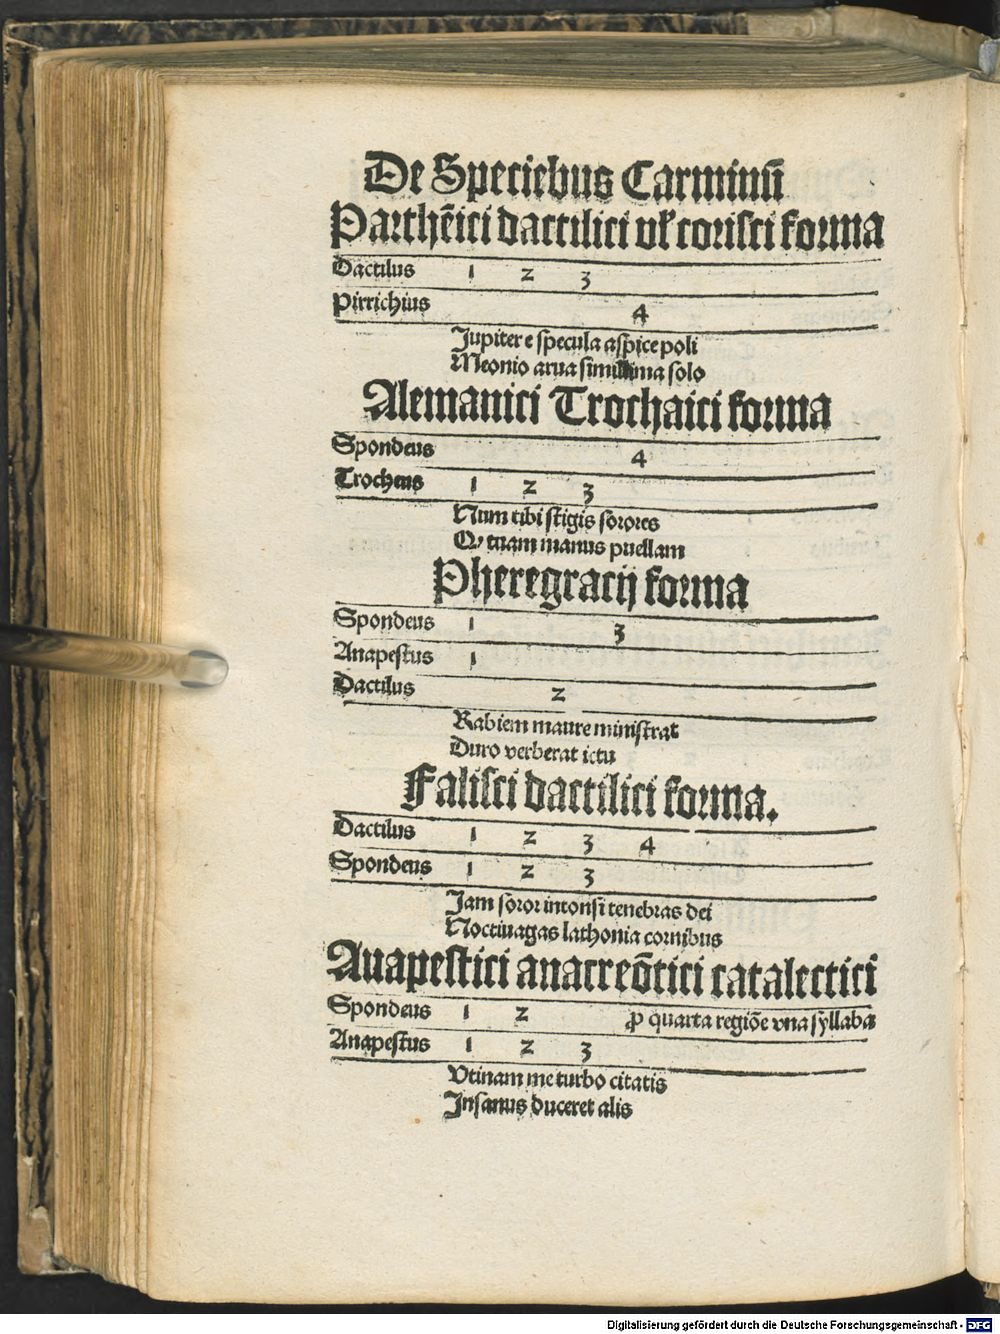 De Speciebus Carminũ
Parthẽici dactilici vł corisci forma
Dactilus 1 2 3
Pirrichius 4
Jupiter e specula aspice poli
Meonio arua simillima solo
Alemanici Trochaici forma
Spondeus 4
Trocheus 1 2 3
Num tibi stigis sorores
Qꝫ tuam manus puellam
Pheregracij forma
Spondeus 1 3
Anapestus 1
Dactilus 2
Rabiem maure ministrat
Duro verberat ictu
Falisci dactilici forma.
Dactilus 1 2 3 4
Spondeus 1 2 3
Jam soror intonsi tenebras dei
Noctiuagas lathonia cornibus
Anapestici anacreõtici catalectici
Spondeus 1 2 ꝓ quarta regiõe vna syllaba
Anapestus 1 2 3
Vtinam me turbo citatis
Insanus duceret alis
Digitalisierung gefördert durch die Deutsche Forschungsgemeinschaft - DFG